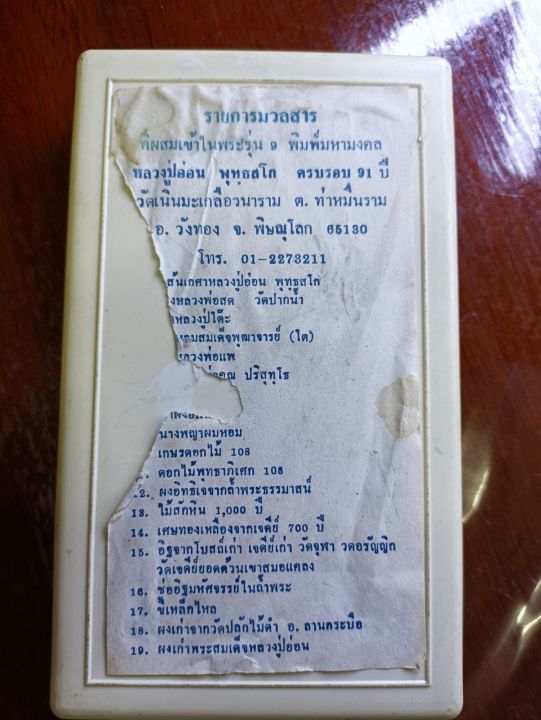 รายการมวลสาร
ที่ผสมเข้าในพระรุ่น 9 พิมพ์มหามงคล
หลวงปู่อ่อน พุทฺธสโก ครบรอบ 91 ปี
วัดเนินมะเกลือวนาราม ต. ท่าหมื่นราม
อ. วังทอง จ. พิษณุโลก 65130
โทร. 01-2273211
เส้นเกศาหลวงปู่อ่อน พุทฺธสโก
หลวงพ่อสด วัดปากน้ำ
หลวงปู่โต๊ะ
สมเด็จพุฒาจารย์ (โต)
หลวงพ่อแพ
คูณ ปริสุทฺโธ
นางพญาผมหอม
เกษรดอกไม้ 108
ดอกไม้พุทธาภิเศก 108
12. ผงอิทธิเจจากถ้ำพระธรรมาสน์
13. ไม้สักหิน 1,000 ปี
14. เศษทองเหลืองจากเจดีย์ 700 ปี
15. อิฐจากโบสถ์เก่า เจดีย์เก่า วัดจุฬา วัดอรัญญิก
วัดเจดีย์ยอดด้วนเขาสมอแคลง
16. ช่ออิฐมหัศจรรย์ในถ้ำพระ
17. ขี้เหล็กไหล
18. ผงเก่าจากวัดปลักไม้ดำ อ. ลานกระบือ
19. ผงเก่าพระสมเด็จหลวงปู่อ่อน